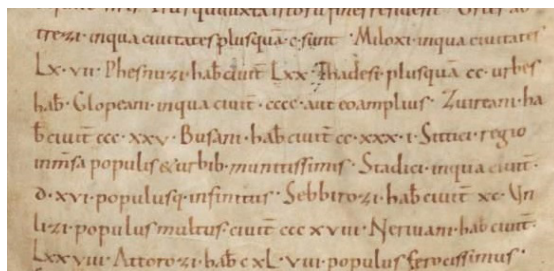 trezi · inqua ciuitates plusquā · c · sunt · Miloxi · inqua ciuitates
Lx · vii · Phesnuzi · hab̄ ciuit̄ · Lxx Thadesi · plusquā cc · urbes
hab̄ · Glopeani · inqua ciuit̄ · cccc · aut eo amplius · Zuireani · ha
b̄ ciuit̄ ccc · xxv · Busani · hab̄ ciuit̄ cc · xxx · i · Sittici · regio
inmsa populis & urbib · munitissimis · Stadici · inqua ciuit̄ ·
d · xvi · populusq · infinitus · Sebbirozi · hab̄ ciuit̄ xc · Vn
lizi · populus multus ciuit̄ ccc xviii · Neriuani · hab̄ ciuit̄ ·
Lxxviii · Attorozi · hab̄ c xL · viii · populus ferocissimus ·